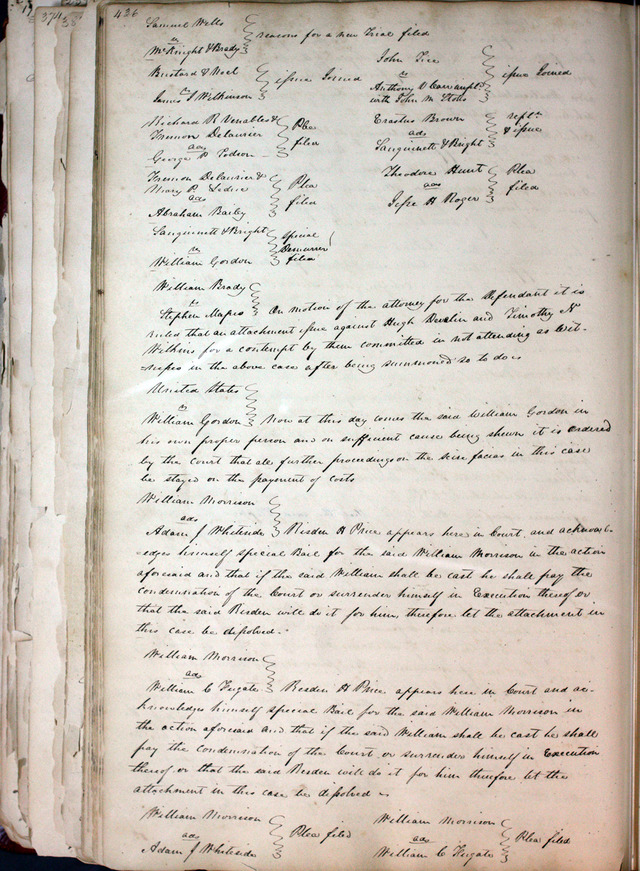 426
Samuel Wells
vs
McKnight & Brady
reasons for a new Trial filed
Bustard & Noel
vs
James S Wilkinson
issue Joined
Richard R Venables &
Fremon Delaurier
ads
George P
Plea
filed
Fremon Delaurier &
Mary P. Leduc
ads
Abraham Bailey
Plea
filed
Sanguinett & Bright
vs
William Gordon
Special
Demurrer
filed
John
vs
Anthony V
with John M
issue Joined
Erastus Brown
ads
Sanguinett & Bright
repltn
& issue
Theodore Hunt
ads
Jesse H Roger
Plea
filed
William Brady
vs
Stephen Mapes On motion of the attorney for the Defendant it is
ruled that an attachment issue against Hugh Devlin and Timothy N
Withins for a contempt by them committed in not attending as Wit-
=nesses in the above case after being summoned so to do
United States
vs
William Gordon Now at this day comes the said William Gordon in
his own proper person and on sufficient cause being shewn it is Ordered
by the Court that all further proceedings on the scire facias in this case
be stayed on the payment of Costs
William Morrison
ads
Adam J Whiteside Risden H Price appears here in Court and acknowl-
-edges himself special Bail for the said William Morrison in the action
aforesaid and that if the said William shall be cast he shall pay the
Condemnation of the Court or surrender himself in Execution thereof or
that the said Risden will do it for him, therefore let the attachment in
this case be dissolved.-
William Morrison
ads
William C Risden H Price appears here in Court and ac-
knowledges himself special Bail for the said William Morrison in
the action aforesaid and that if the said William shall be cast he shall
pay the Condemnation of the Court or surrender himself in Execution
thereof or that the said Risden will do it for him therefore let the
attachment in this case be dissolved
William Morrison
ads
Adam J Whiteside
Plea filed
William Morrison
ads
William C
Plea filed